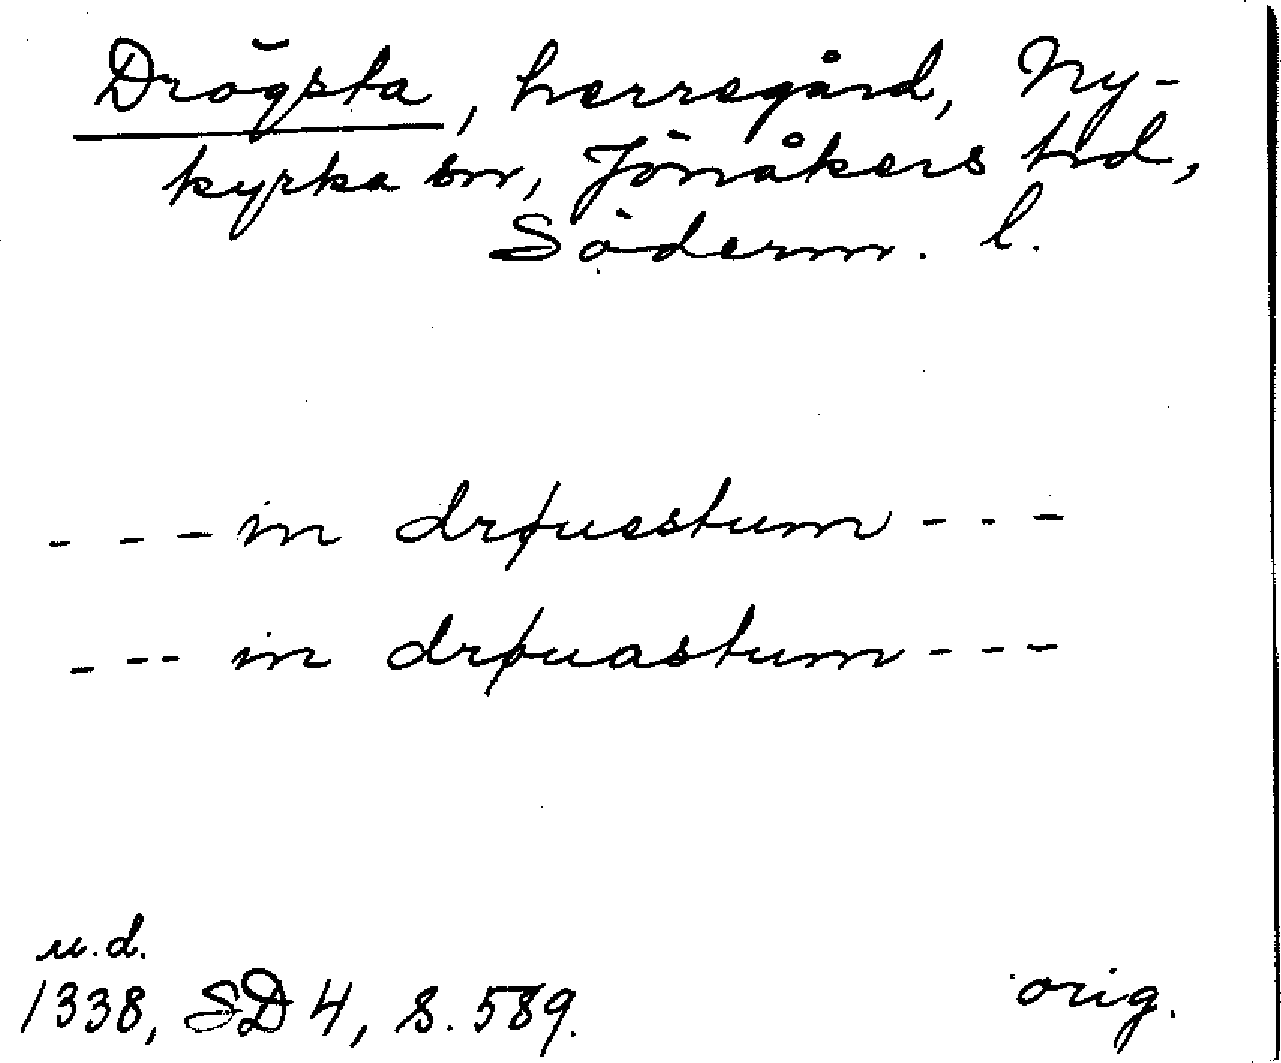 Drögsta, herregård, Ny-
kyrka sn, Jönåkers hd,
Söderm. l.
- - - in drøuestum - - -
- - - in drøuastum - - -
u.d.
1338, SD 4, s. 589. orig.